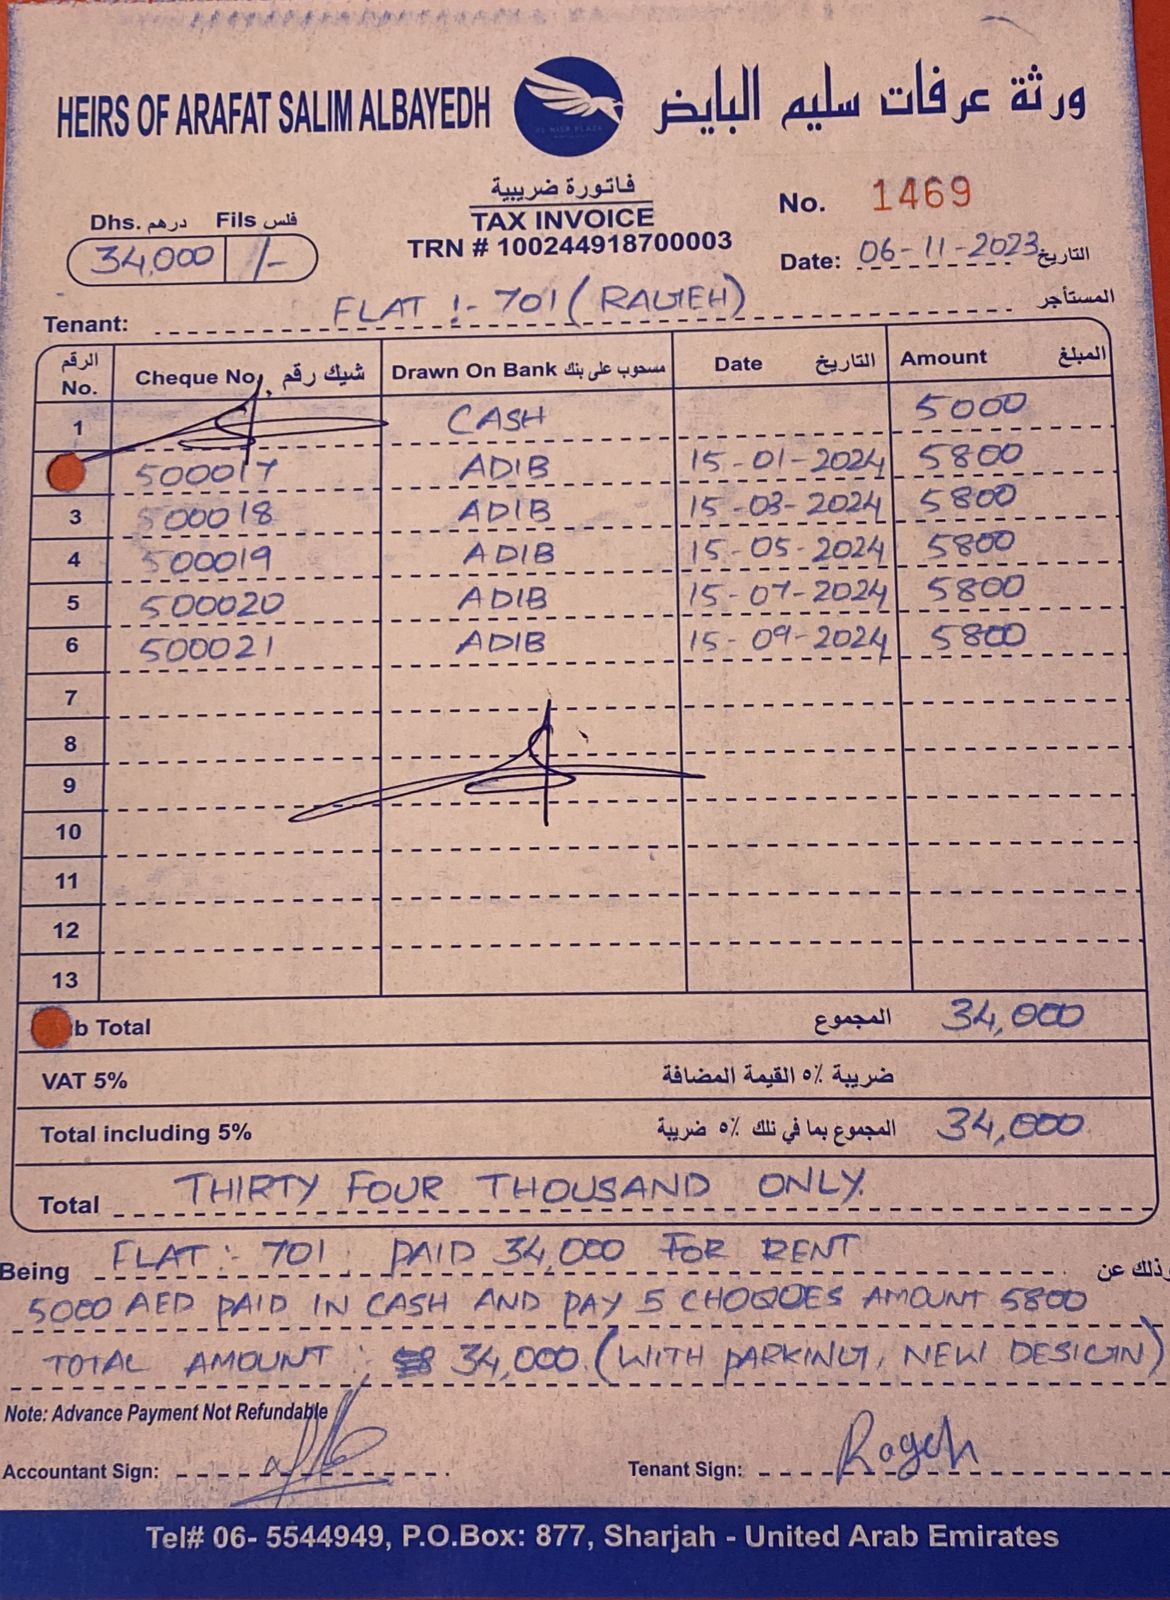 HEIRS OF ARAFAT SALIM ALBAYEDH
ورثة عرفات سليم البايض
فاتورة ضريبية
TAX INVOICE
TRN # 100244918700003
No. 1469
Dhs. درهم Fils فلس
34,000 /-
Date: 06-11-2023 التاريخ
Tenant: FLAT :- 701 (RAGEH) المستأجر
الرقم No. Cheque No. شيك رقم Drawn On Bank مسحوب على بنك Date التاريخ Amount المبلغ
1 CASH 5000
500017 ADIB 15-01-2024 5800
3 500018 ADIB 15-03-2024 5800
4 500019 ADIB 15-05-2024 5800
5 500020 ADIB 15-07-2024 5800
6 500021 ADIB 15-09-2024 5800
7
8
9
10
11
12
13
b Total المجموع 34,000
VAT 5% ضريبة ٥٪ القيمة المضافة
Total including 5% المجموع بما في ذلك ٥٪ ضريبة 34,000
Total THIRTY FOUR THOUSAND ONLY.
Being FLAT :- 701, PAID 34,000 FOR RENT وذلك عن
5000 AED PAID IN CASH AND PAY 5 CHOQOES AMOUNT 5800
TOTAL AMOUNT : 34,000. (WITH PARKING, NEW DESIGN)
Note: Advance Payment Not Refundable
Accountant Sign:
Tenant Sign: Rageh
Tel# 06- 5544949, P.O.Box: 877, Sharjah - United Arab Emirates